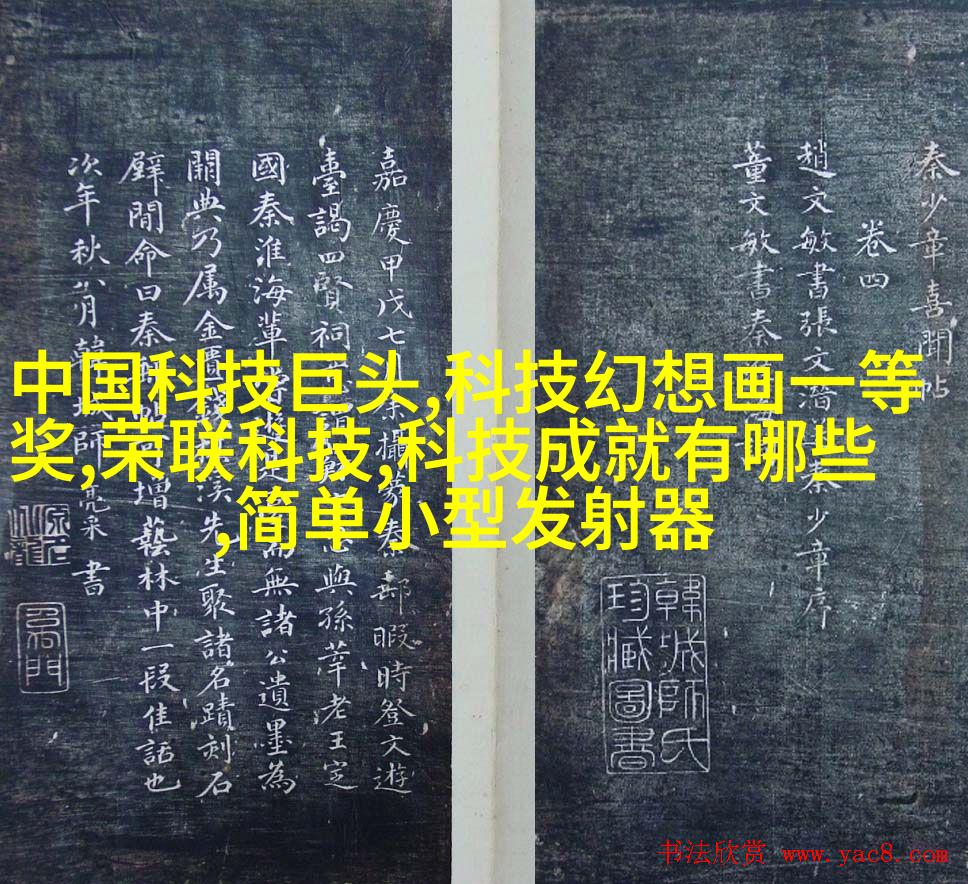 中国科技巨头,科技幻想画一等
奖,荣联科技,科技成就有哪些
,简单小型发射器
秦少章喜聞帖
卷四
趙文敏書張文潛秦少章序
董文敏書秦
嘉慶甲戊七月余攝篆秦郵暇時登文遊
臺謁四賢祠與孫莘老王定
國秦淮海輩無諸公遺墨為
闕典乃属金匱錢溪先生聚諸名蹟刻石
壁間命曰秦郵帖增藝林中一段佳話也
次年秋八月韓城師亮采書
韓城師氏
珍臧圖書
名門
书法欣赏 www.yac8.com